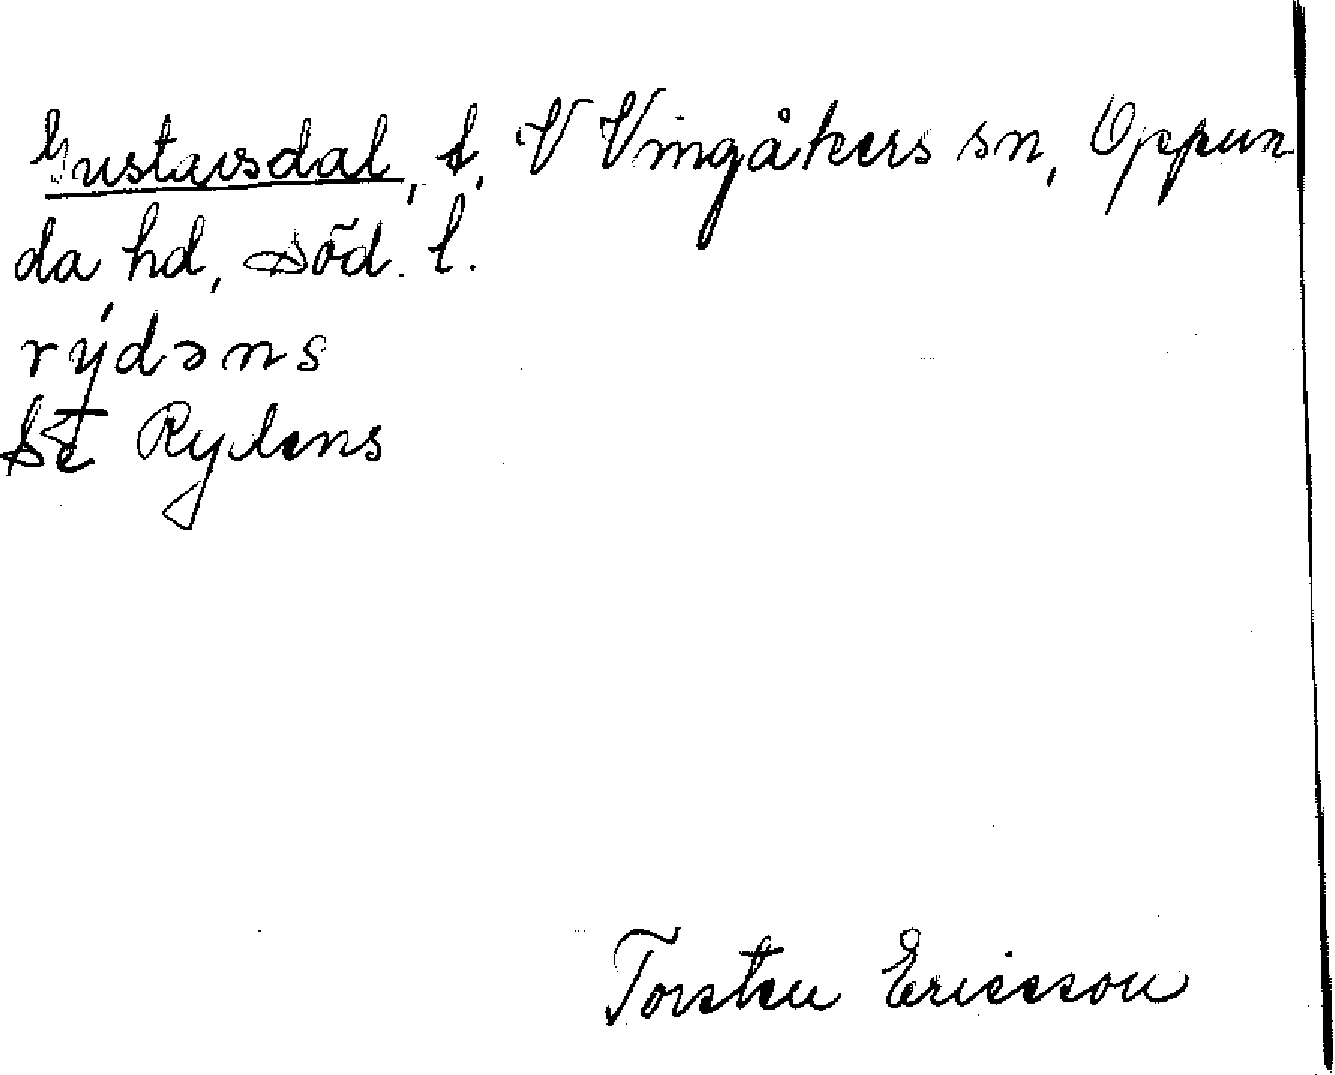 Gustavsdal, t, V Vingåkers sn, Oppun
da hd, Söd. l.
rýdəns
St Rylens
Torsten Ericsson